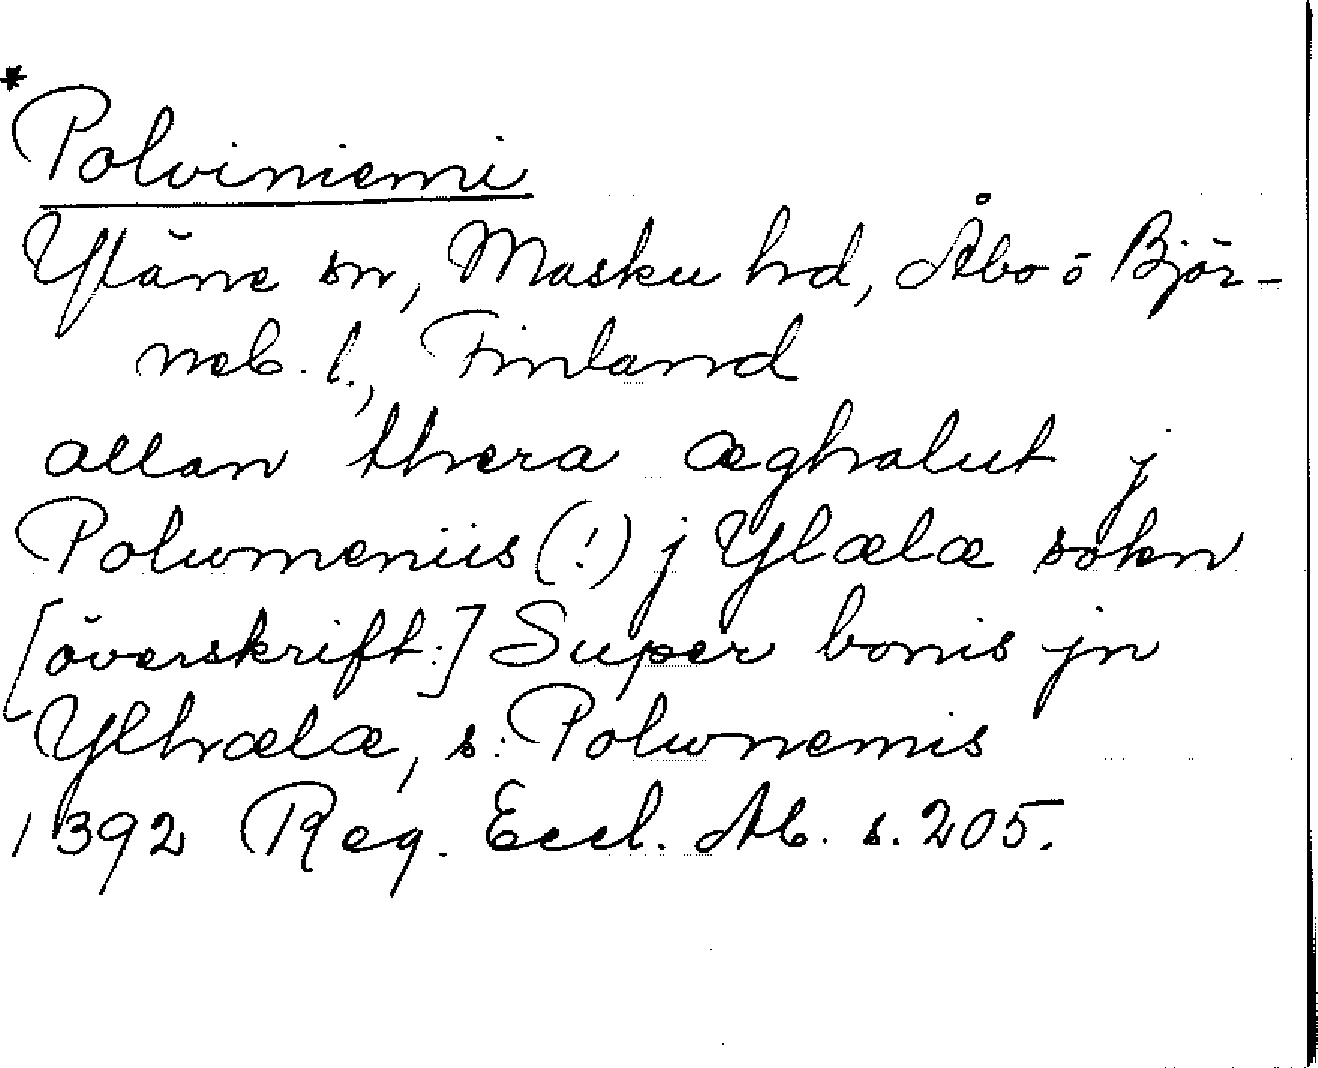 *
Polviniemi
Yläne sn, Masku hd, Åbo ö Björ-
neb. l., Finland
allan thera æghalut j
Polumeniis (!) j Ylælæ sokn
[överskrift:] Super bonis jn
Ylhælæ, s: Polwnemis
1392 Reg. Eccl. Ab. s. 205.